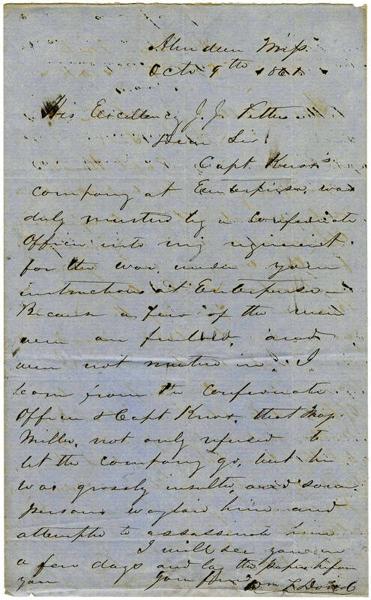 Aberdeen Miss
Octo 9th 1861
His Excellency J. J. Pettus
Dear Sir
Capt. Knox's
company at Enterprise was
duly mustered by a Confederate
Officer into my regiment
for the war, under your
instructions at Enterprise
Because a few of the men
were on furlough, and
were not mustered in. I
learn from the Confederate
Officer & Capt Knox, that Maj
Miller, not only refused to
let the company go, but he
was grossly insulted, and some
persons waylaid him and
attempted to assassinate him
I will see you in
a few days and lay the papers before
you